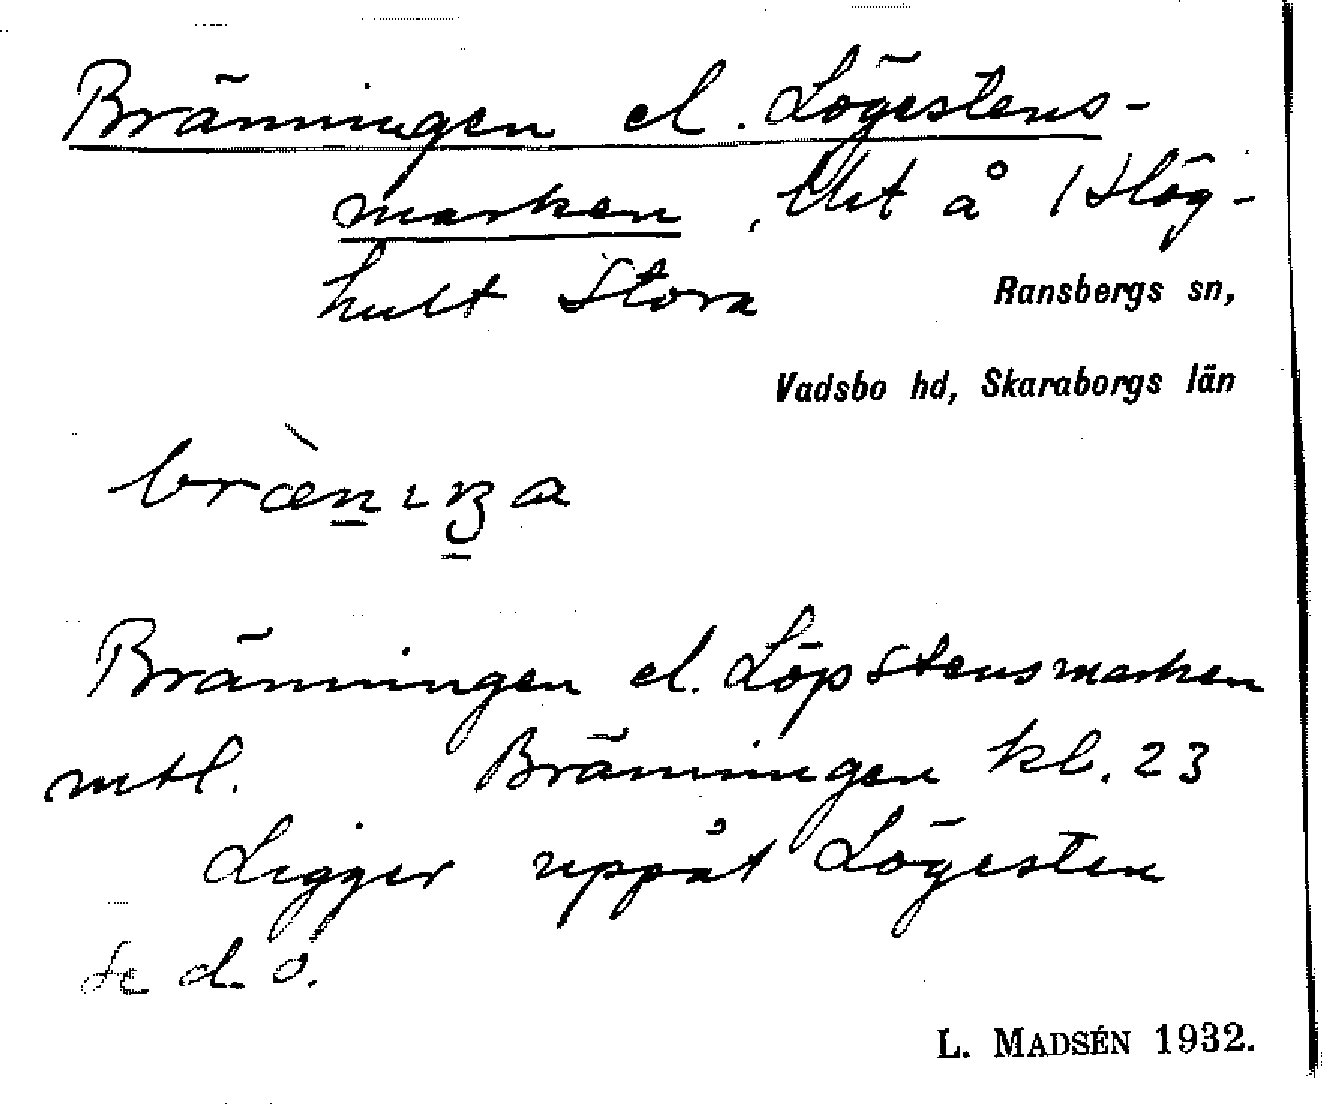 Bränningen el. Lögestens-
marken, Urt å 1 Hög-
hult Stora
Ransbergs sn,
Vadsbo hd, Skaraborgs län
Bränningen el. Löpstensmarken
mtl. Bränningen kl. 23
Ligger uppåt Lögesten
Se d. o.
L. MADSÉN 1932.